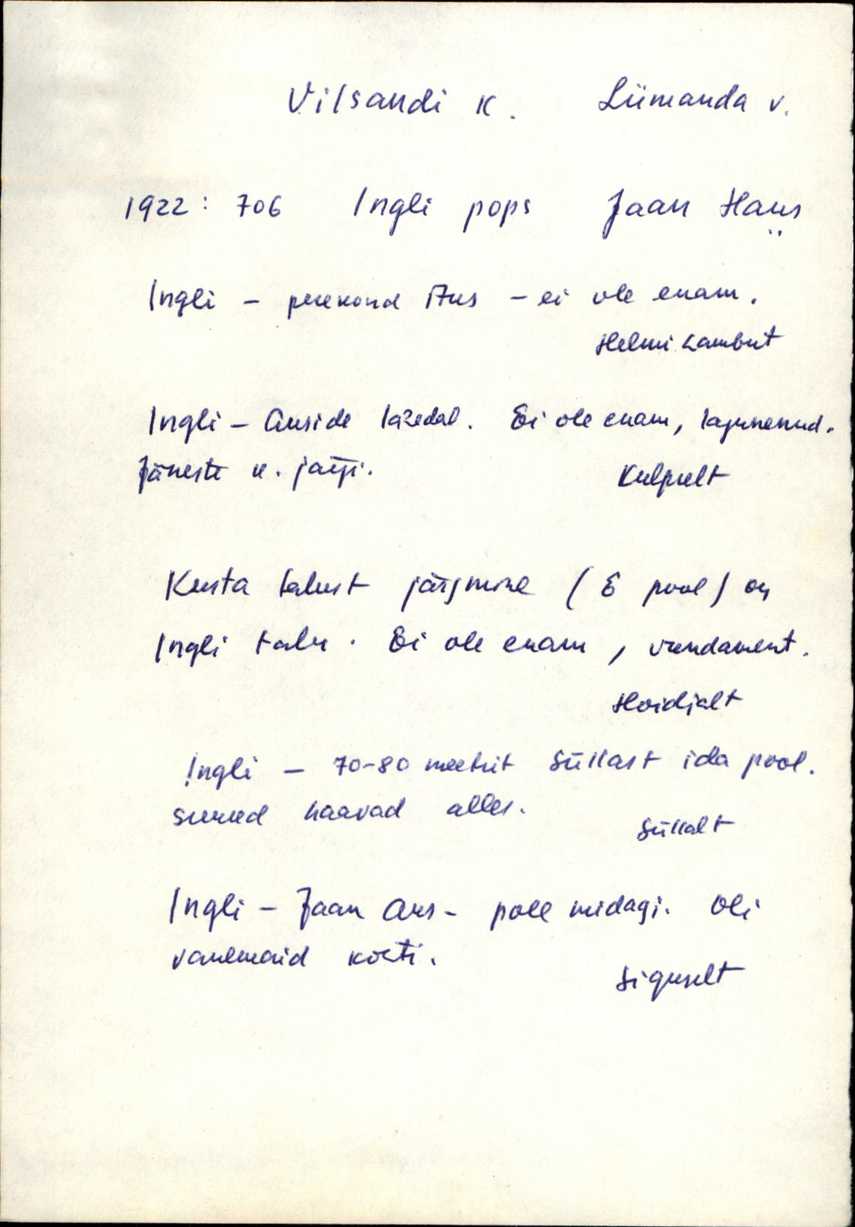 Vilsandi k. Lümanda v.
1922: 706 Ingli pops Jaan Haus
Ingli - perekond Aus - ei ole enam.
Helmi Lambut
Ingli - Auside lähedal. Ei ole enam, lagunenud.
Jäneste k. järgi.
Kulpselt
Kusta talust järgmine (E pool) on
Ingli talu. Ei ole enam, vundament.
Hoidjalt
Ingli - 70-80 meetrit Süllast ida pool.
Suured haavad alles.
Süllalt
Ingli - Jaan Aus - pole midagi. Oli
vanemaid kohti.